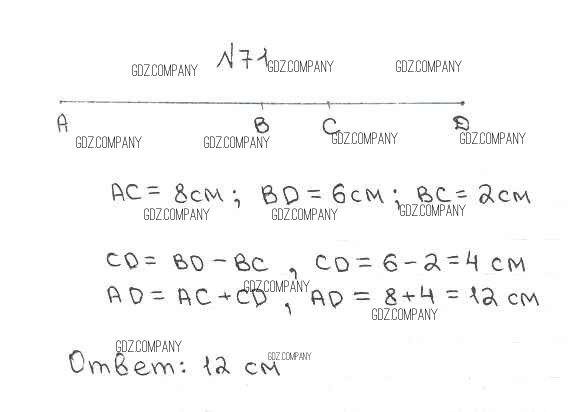 N71
GDZ.COMPANY GDZ.COMPANY GDZ.COMPANY
A B C D
GDZ.COMPANY GDZ.COMPANY GDZ.COMPANY GDZ.COMPANY
AC = 8см; BD = 6см; BC = 2см
GDZ.COMPANY GDZ.COMPANY GDZ.COMPANY
CD = BD - BC, CD = 6 - 2 = 4 см
GDZ.COMPANY
AD = AC + CD, AD = 8 + 4 = 12 см
GDZ.COMPANY
GDZ.COMPANY GDZ.COMPANY
Ответ: 12 см